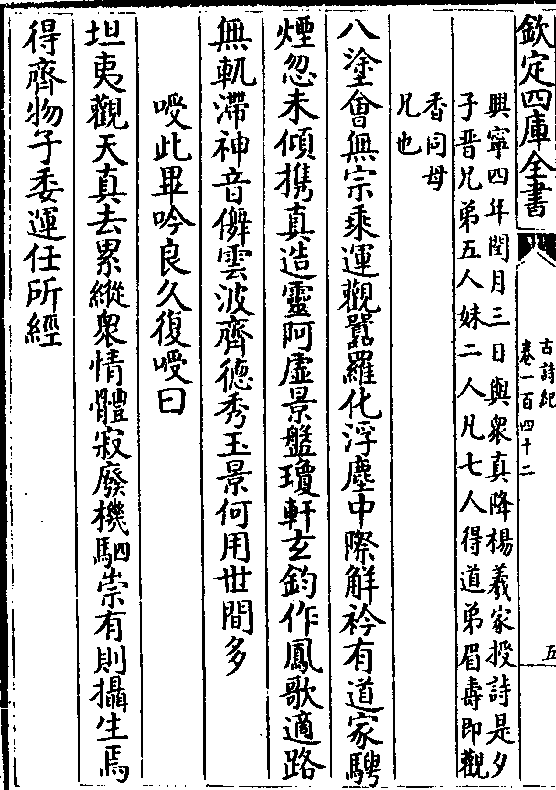 欽定四庫全書
古詩紀
卷一百四十二
五
興寧四年閏月三日與衆真降楊羲家授詩是夕
子晉兄弟五人妹二人凡七人得道弟眉壽即觀
香同母
兄也
八塗會無宗乘運觀囂羅化浮塵中際解衿有道家騁
煙忽未傾携真造靈阿虛景盤瓊軒玄鈞作鳳歌適路
無軌滯神音儛雲波齊德秀玉景何用世間多
喥此畢吟良久復喥曰
坦夷觀天真去累縱衆情體寂廢機駟崇有則攝生焉
得齊物子委運任所經